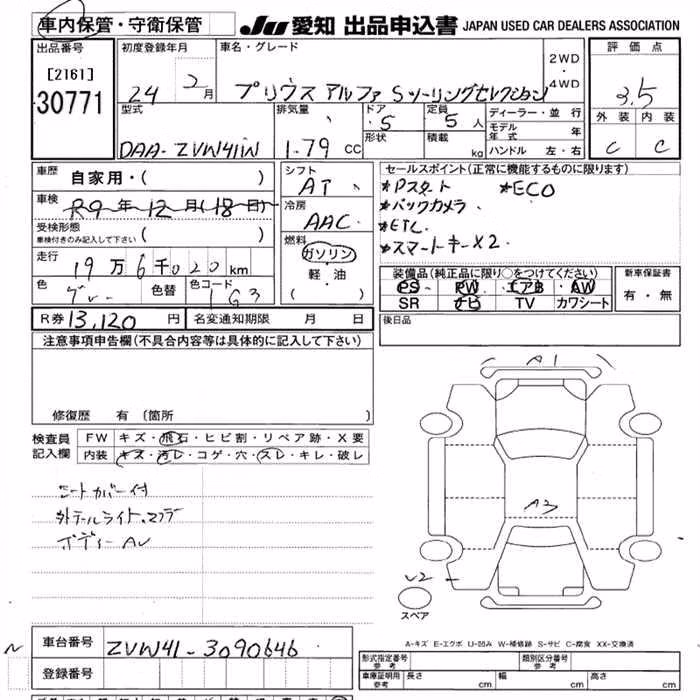 車内保管・守衛保管 JU 愛知 出品申込書 JAPAN USED CAR DEALERS ASSOCIATION
出品番号 初度登録年月 車名・グレード 評価点
[2161] 24 2月 プリウス アルファ Sツーリングセレクション 2WD・4WD 3.5
30771 型式 排気量 ドア 5 定員 5人 ディーラー・並行 外装 内装
形状 積載 kg モデル年式 年
DAA-ZVW41W 1.79 CC ハンドル 左・右 C C
車歴 自家用・( ) シフト AT セールスポイント(正常に機能するものに限ります)
車検 R9年12月(18日) 冷房 AAC *Pスタート *ECO
受検形態 *バックカメラ
車検付きのみ記入して下さい ( ) 燃料 *ETC
走行 19万6千020km ガソリン *スマートキーX2
軽・油 装備品(純正品に限り○をつけてください) 新車保証書
色 グレー 色替 色コード 1G3 ( ・ ) PS・PW・エアB・AW 有・無
SR ナビ TV カワシート
R券 13,120円 名変通知期限 月 日 後日品
注意事項申告欄(不具合内容等は具体的に記入して下さい)
A1
修復歴 有 〔箇所 〕
検査員 FW キズ・飛石・ヒビ割・リペア跡・X要
記入欄 内装 キズ・汚レ・コゲ・穴・スレ・キレ・破レ
シートカバー付
A3
外テールライト、マフラ
ボディーAU
U2
スペア
A-キズ E-エクボ U-凹み W-補修跡 S-サビ C-腐食 XX-交換済
車台番号 ZVW41-3090646
登録番号 形式指定番号 参考 類別区分番号 参考
車庫証明用 参考 長さ cm 幅 cm 高さ cm